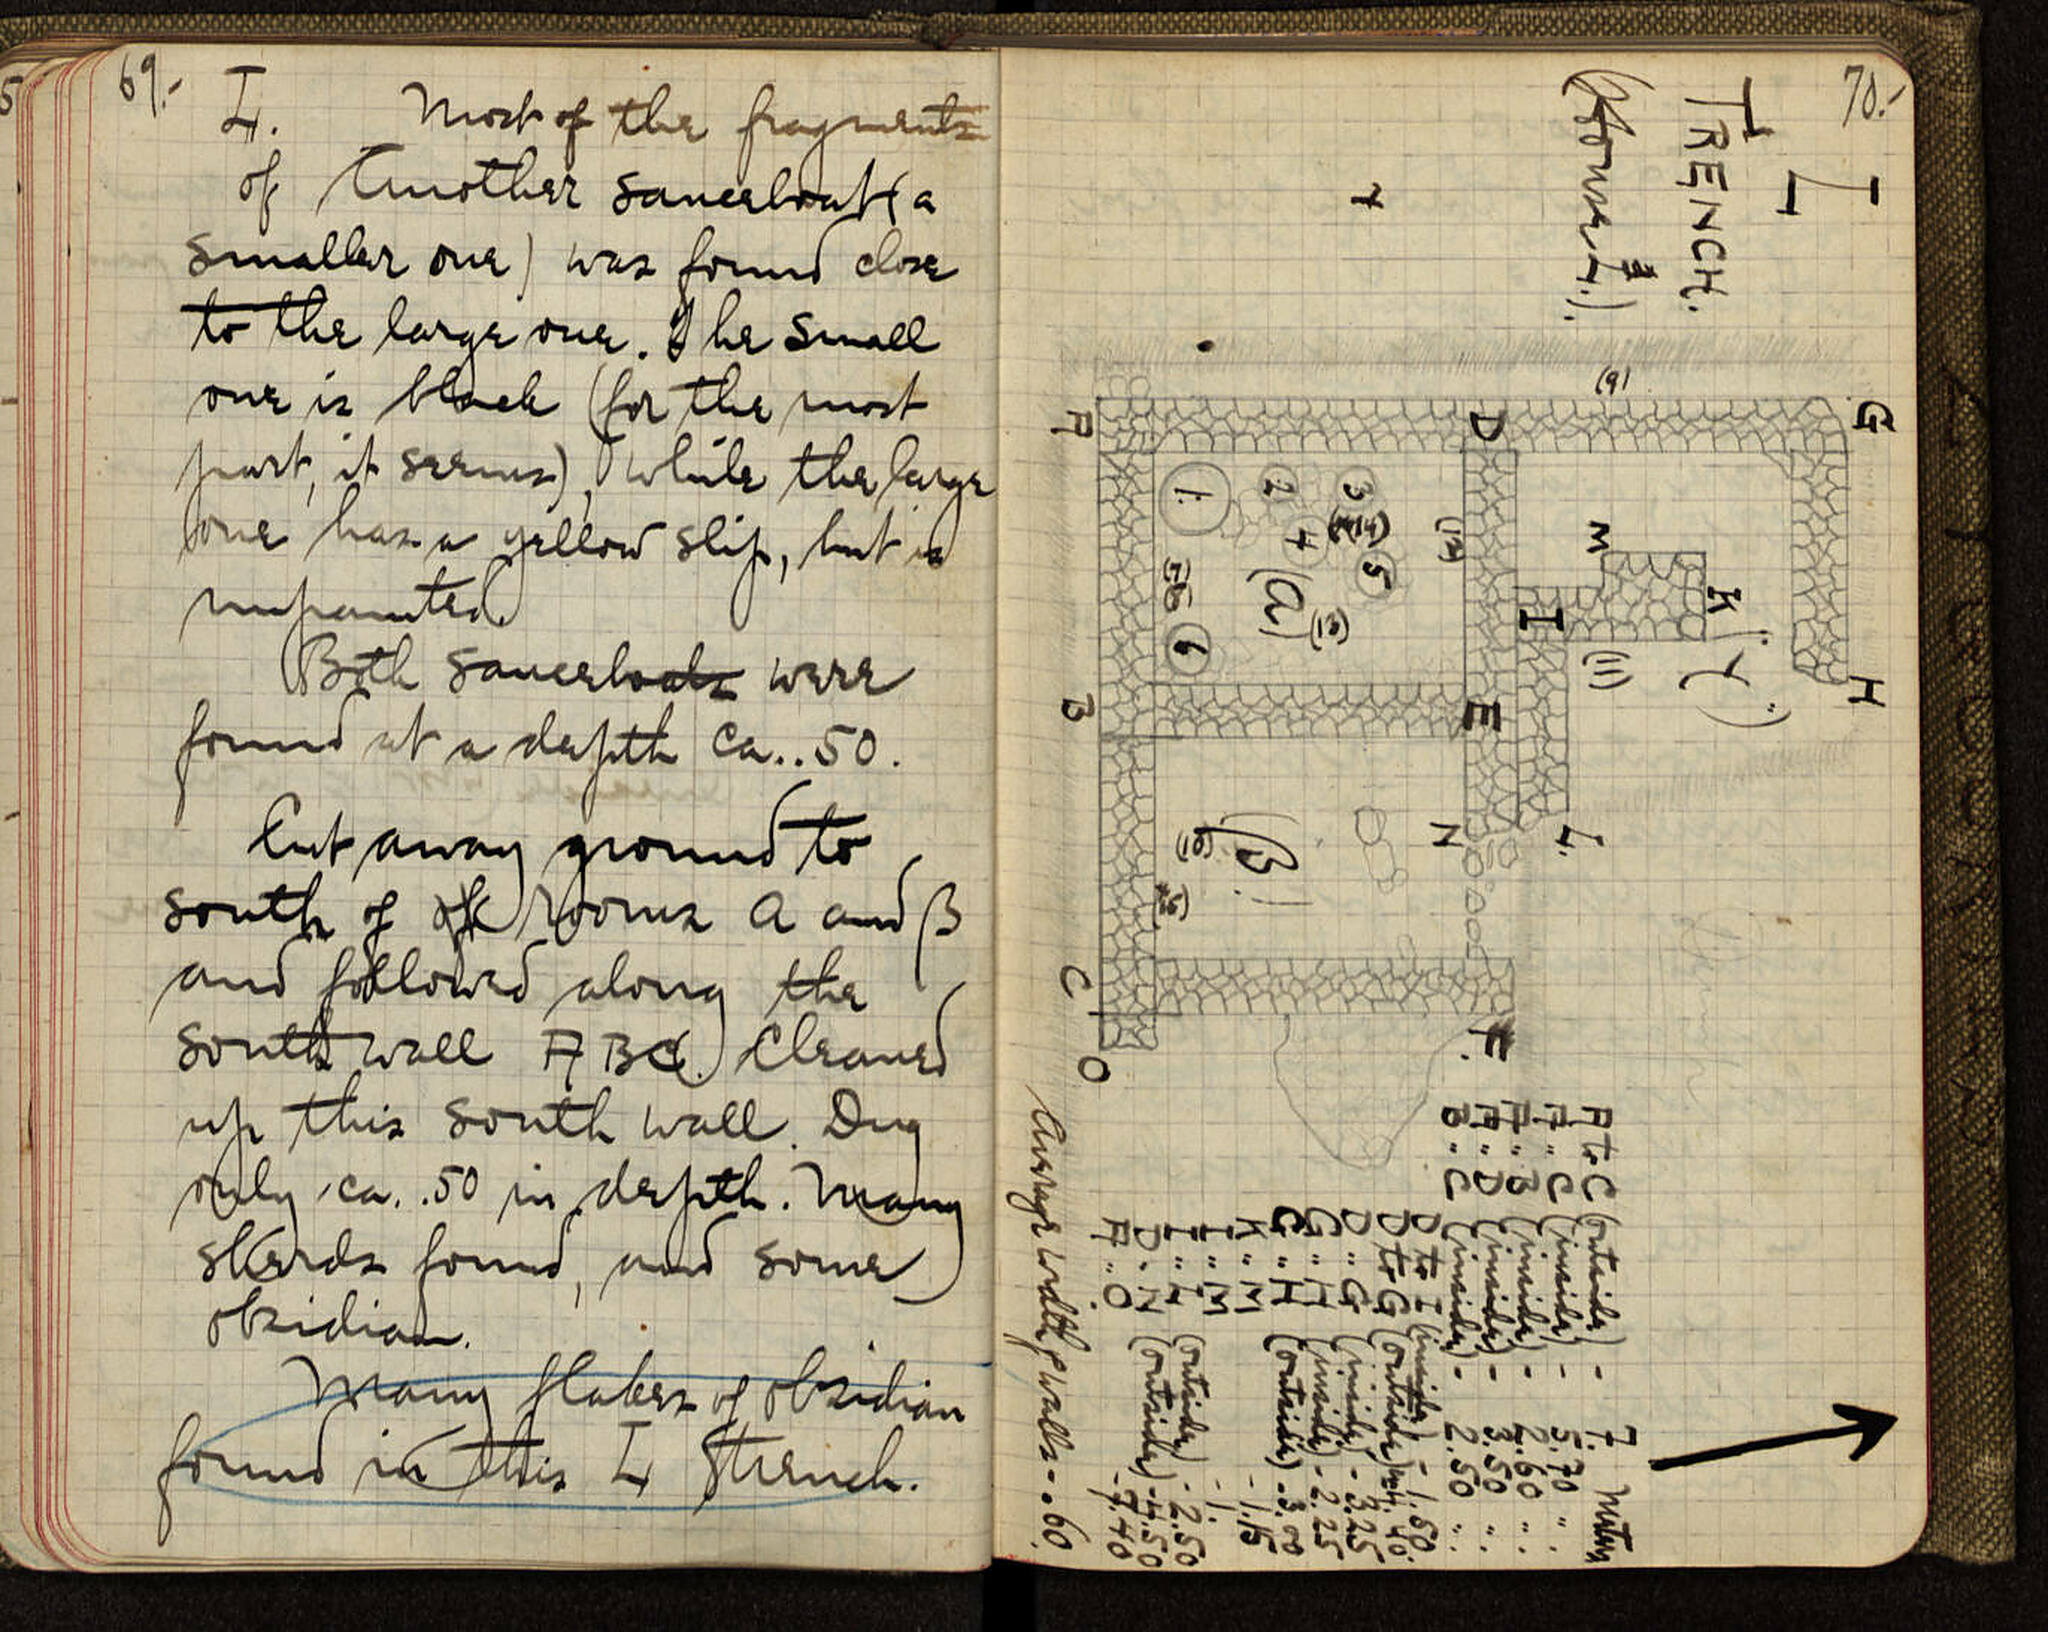 69.-
L. Most of the fragments
of another sauceboat (a
smaller one) was found close
to the large one. The small
one is black (for the most
part, it seems), while the large
one has a yellow slip, but is
unpainted.
Both sauceboats were
found at a depth ca. .50.
Cut away ground to
south of rooms A and B
and followed along the
south wall ABC. Cleaned
up this south wall. Dug
only ca. .50 in depth. Many
sherds found, and some
obsidian.
Many flakes of obsidian
found in this L trench.
70.-
L
TRENCH.
(House L.).
G
H
(9)
K
("Y")
M
I
(11)
L.
D
(12)
E
N
F.
3
5
2
4
(a)
1.
6
B.
(10)
A
B
C
O
A to C (outside) - 7. Meters
F " C (inside) - 5.70 "
E " B (inside) - 2.60 "
E " D (inside) - 3.50 "
B " C (inside) - 2.50 "
D to I (inside) - 1.50.
D to G (outside) - 4.40.
D " G (inside) - 3.25
G " H (inside) - 2.25
G " H (outside) - 3.00
K " M - 1.15
I " M - 1.
I " L (outside) - 2.50
D " N (outside) - 4.50
A " O - 7.40
Average width of walls - .60.